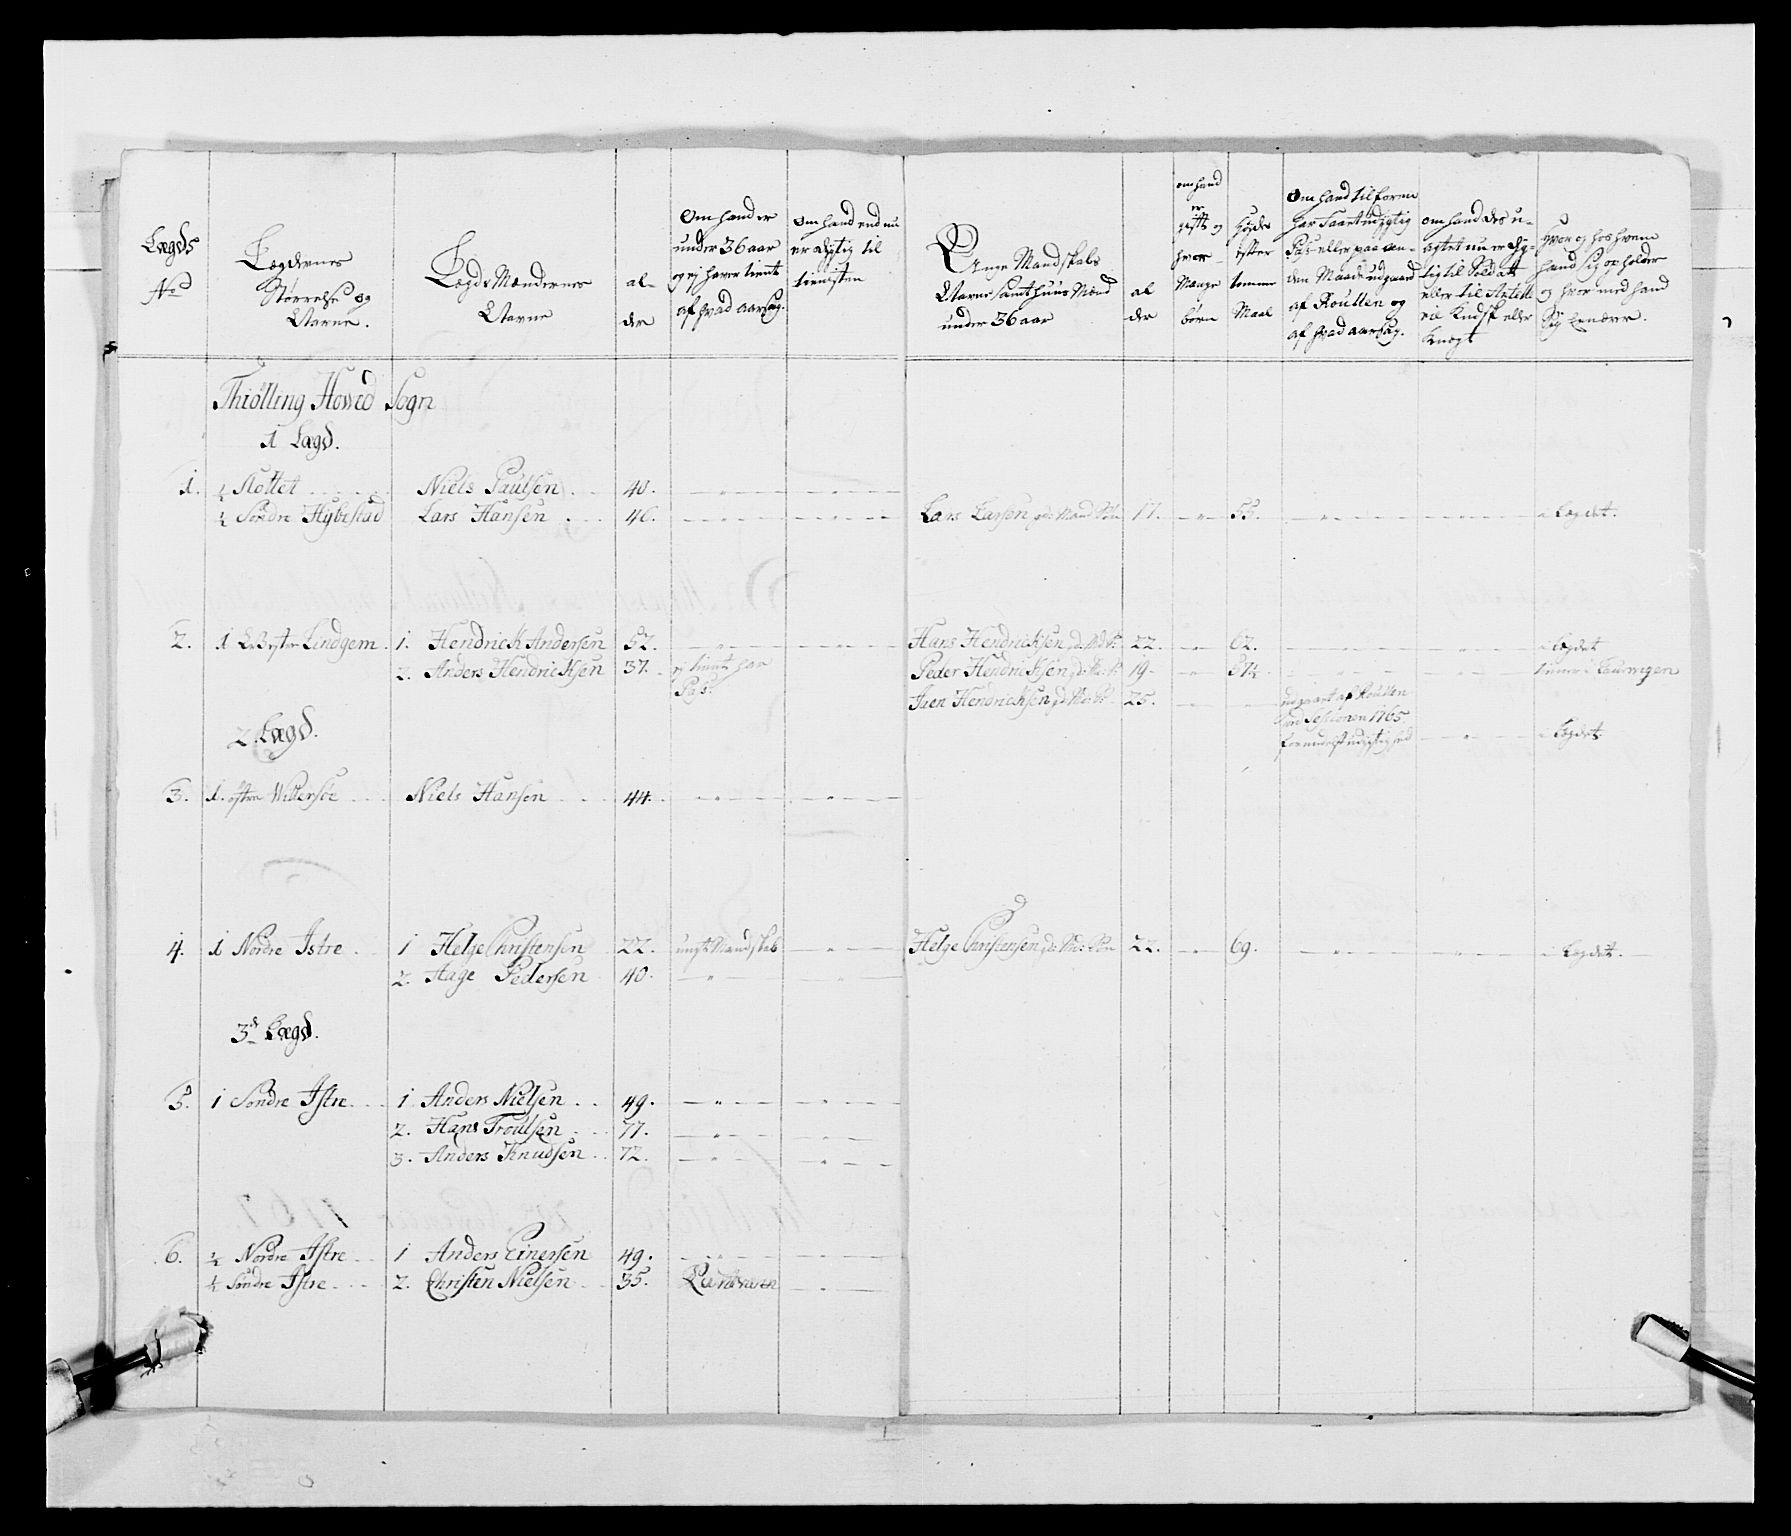 Lægds
No
Lægdernes
Størrelse og
Navne.
Lægds Mændernes
Navne
al-
der
Om hand er
under 36 aar
og ej haver tient
af hvad aarsag.
Om hand end nu
er dygtig til
tienisten
Unge Mandskabs
Navne samt huus Mænd
under 36 aar
al
der
om hand
er
gift og
hvor
Mange
børn
Høyde
efter
tomme
Maal
Om hand tilforne
har faaet udygtig
Pas eller paa an-
den Maade udgaaed
af Roullen og
af hvad aarsag.
om hand des u-
agtet nu er dyg-
tig til Soldatt
eller til
Kudsk eller
Knegt
Hvor og hos hvem
hand sig opholder
og hvor med hand
Sig Ernærer.
Thiølling Howed Sogn
1 Lægd.
1. ½ Kottet Niels Paulsen 40.
½ Søndre Hybestad Lars Hansen 46. Lars Larsen gd: Mand Søn 17. 55. i Lægdet.
2. 1 Westre Lindgem 1. Hendrick Andersen 52. Hans Hendricksen 22. 62. i Lægdet
2. Anders Hendricksen 37. ej tient har Peder Hendricksen 19. 61½ tiener i Laurvigen
Pas. Iven Hendricksen 25. udgaaet af Roullen
ved Sessionen 1765.
formedelst udygtighed i Lægdet.
2. Lægd.
3. 1. østre Willersøe Niels Hansen 44.
4. 1 Nordre Istre 1 Helge Christensen 22. ungt Mandskab Helge Christensen gd: Md: Søn 22. 69. i Lægdet.
2. Aage Pedersen 40.
3d Lægd.
5. 1 Søndre Istre 1 Anders Nielsen 49.
2. Hans Troulsen 77.
3. Anders Knudsen 72.
6. ½ Nordre Istre 1 Anders Einersen 49.
½ Søndre Istre 2. Christen Nielsen 35.